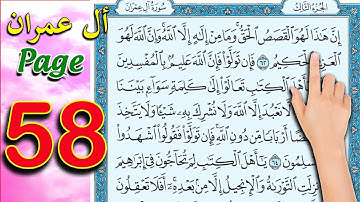 أل عمران
Page
58
الجزء الثالث
سورة آل عمران
إِنَّ هَٰذَا لَهُوَ ٱلْقَصَصُ ٱلْحَقُّ وَمَا مِنْ إِلَٰهٍ إِلَّا ٱللَّهُ وَإِنَّ ٱللَّهَ لَهُوَ
ٱلْحَكِيمُ ٦٢ فَإِن تَوَلَّوْا۟ فَإِنَّ ٱللَّهَ عَلِيمٌۢ بِٱلْمُفْسِدِينَ
يَٰٓأَهْلَ ٱلْكِتَٰبِ تَعَالَوْا۟ إِلَىٰ كَلِمَةٍ سَوَآءٍۭ بَيْنَنَا
نَعْبُدَ إِلَّا ٱللَّهَ وَلَا نُشْرِكَ بِهِۦ شَيْـًٔا وَلَا يَتَّخِذَ
بَعْضًا أَرْبَابًا مِّن دُونِ ٱللَّهِ فَإِن تَوَلَّوْا۟ فَقُولُوا۟ ٱشْهَدُوا۟
مُسْلِمُونَ ٦٤ يَٰٓأَهْلَ ٱلْكِتَٰبِ لِمَ تُحَآجُّونَ فِىٓ إِبْرَٰهِيمَ
أُنزِلَتِ ٱلتَّوْرَىٰةُ وَٱلْإِنجِيلُ إِلَّا مِنۢ بَعْدِهِۦٓ أَفَلَا تَعْقِلُونَ